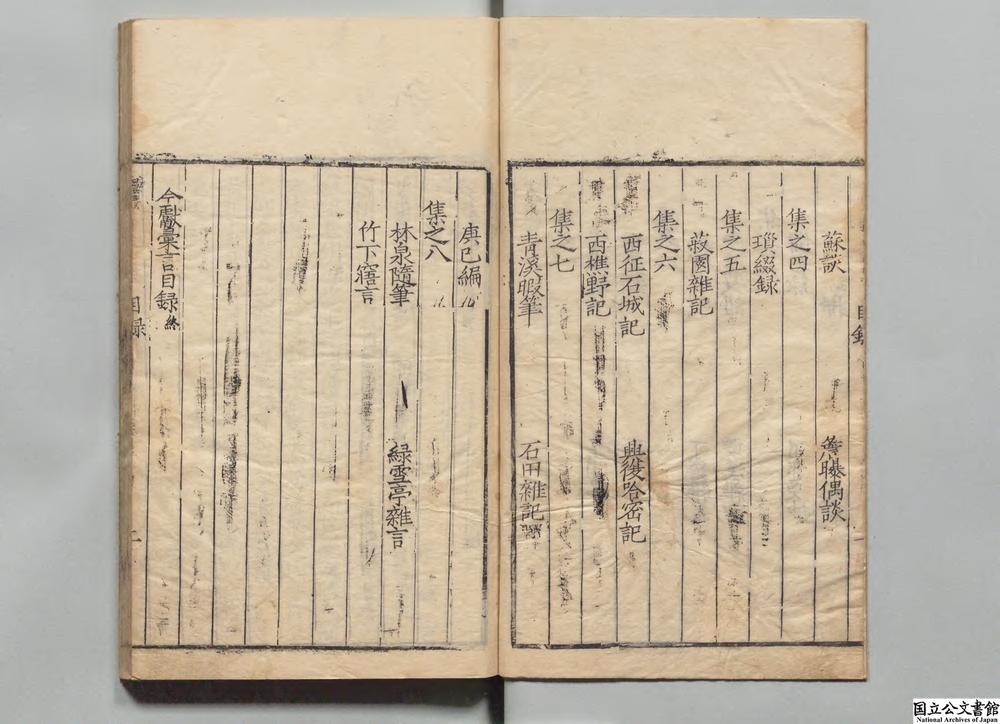 蘇談 詹曝偶談
集之四
瑣綴録
集之五
菽園雜記
集之六
西征石城記 興復哈密記
西樵野記
集之七
青溪暇筆 石田雜記
目録
庚巳編
集之八
林泉隨筆 緑雪亭雜言
竹下寤言
今獻彙言目録終
目録
二
国立公文書館
National Archives of Japan